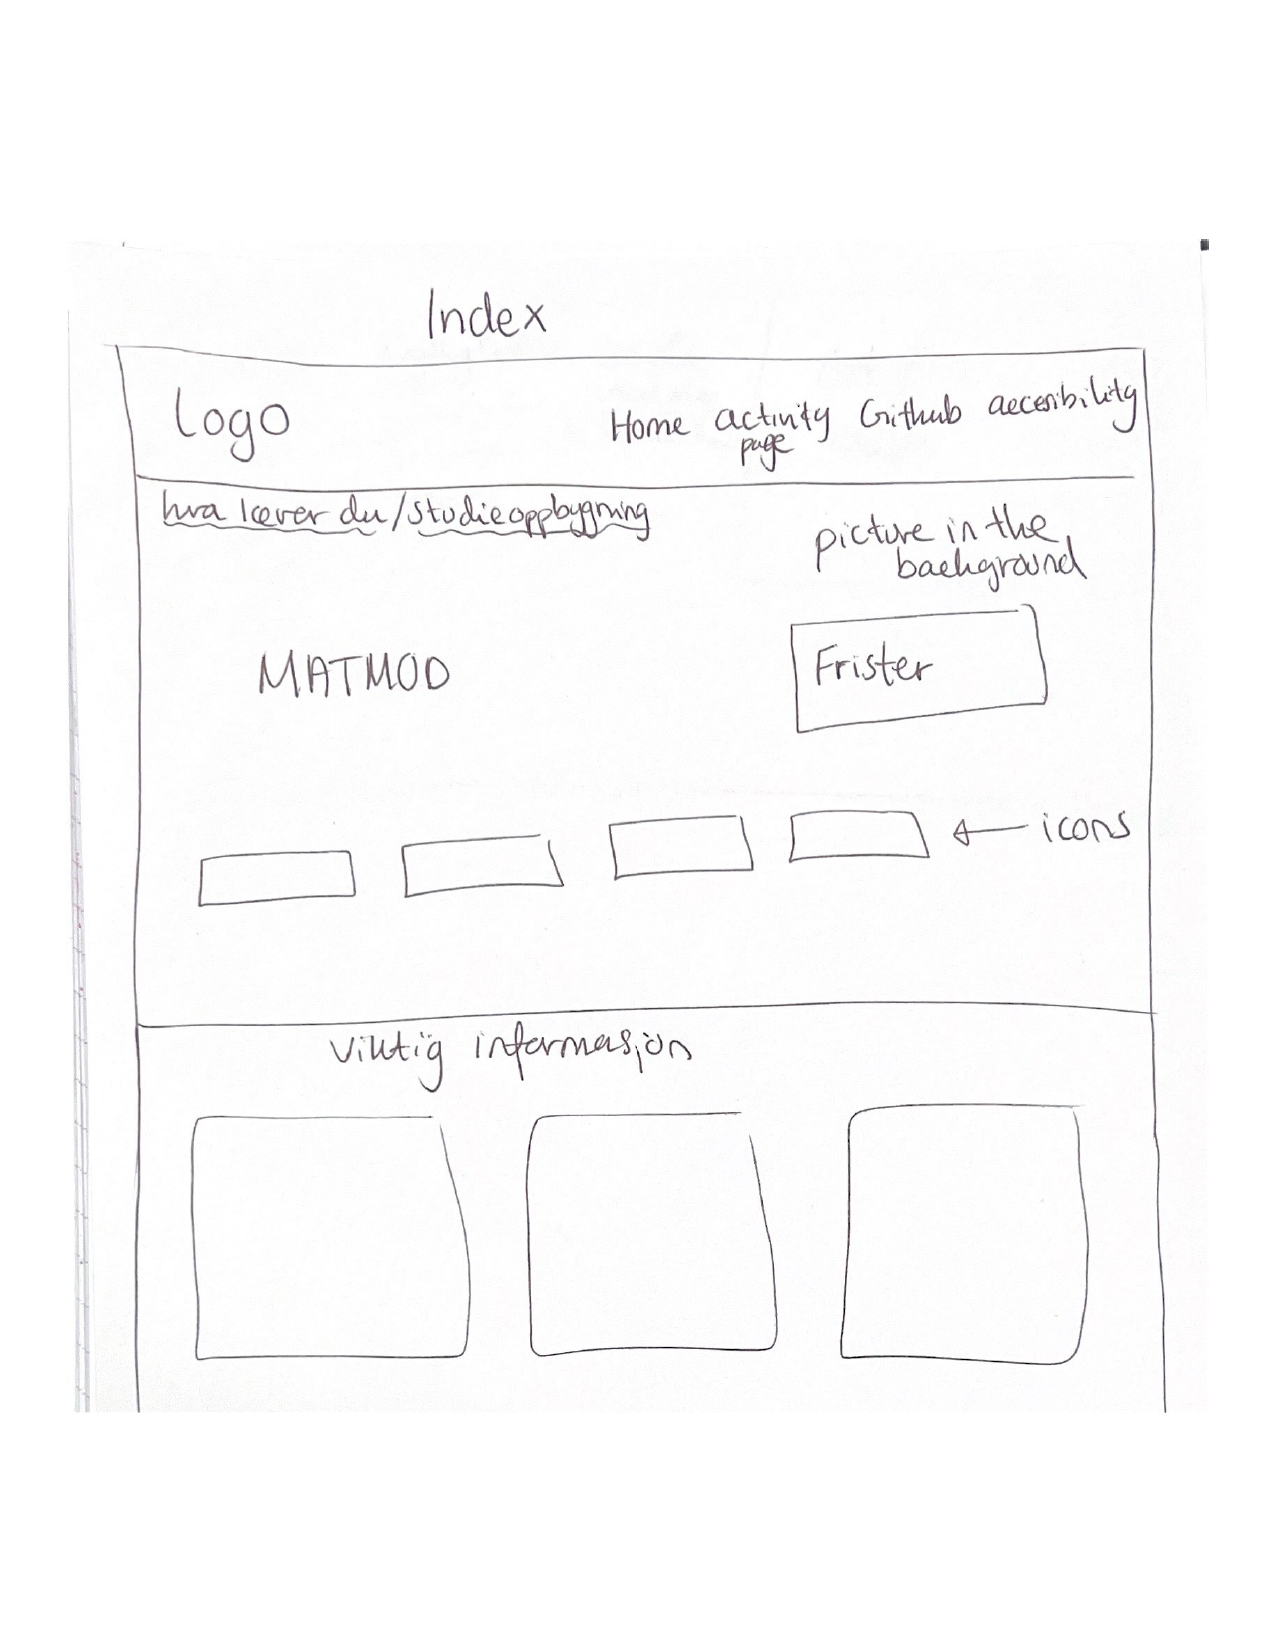 Index
Logo
Home activity Github accesibility
page
hva lærer du/studieoppbygning
picture in the
background
MATMOD
Frister
icons
viktig informasjon